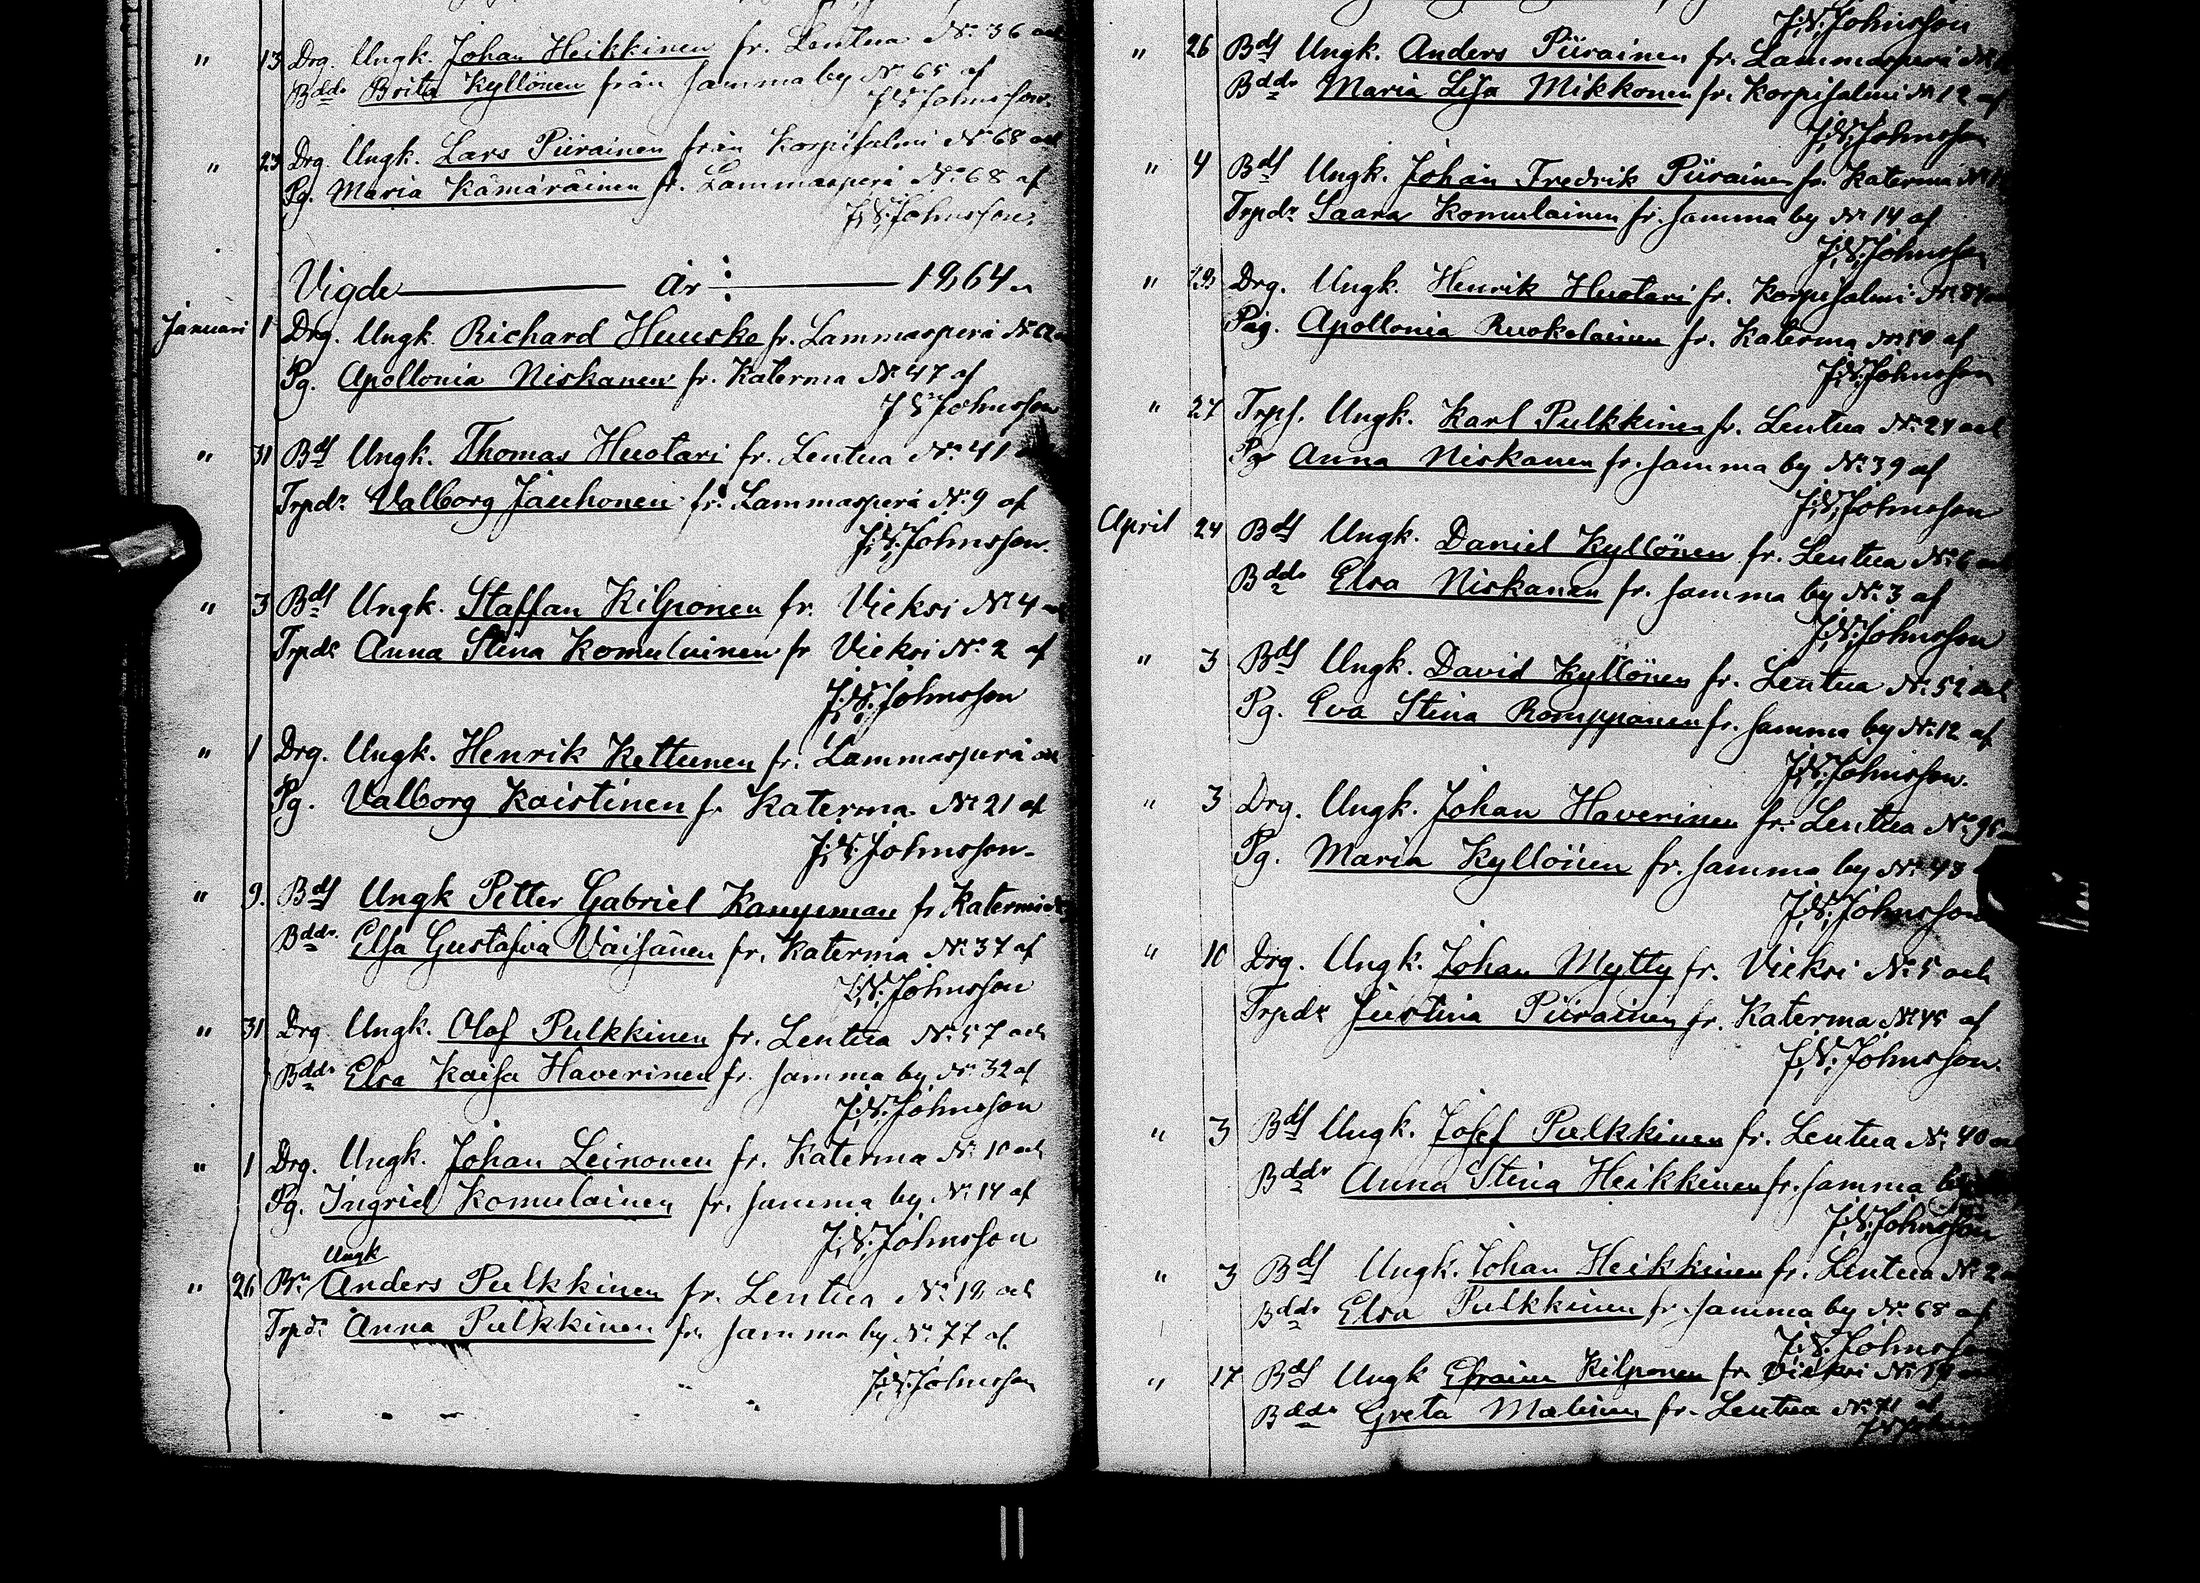 J:N:Johnsson
" 13 Drg. Ungk. Johan Heikkinen fr. Lentua No 36 och
Bddr Brita Kyllönen från samma by No 65 af
J:N:Johnsson.
" 23 Drg. Ungk. Lars Piirainen från Korpisalmi No 68 och
Pg. Maria Kämäräinen fr. Lammasperä No 68 af
J:N:Johnsson.
Vigde år: 1864.
Januari 1 Drg. Ungk. Richard Huusko fr. Lammasperä No
Pg. Apollonia Niskanen fr. Katerma No 47 af
J N Johnsson
" 31 Bdf Ungk. Thomas Huotari fr. Lentua No 41
Trpdr Valborg Jauhonen fr. Lammasperä No 9 af
J:N:Johnsson.
" 3 Bdf Ungk. Staffan Kilponen fr. Vieksi No 4
Trpdr Anna Stina Komulainen fr Vieksi No 2 af
J:N:Johnsson
" 1 Drg. Ungk. Henrik Kettunen fr. Lammasperä och
Pg. Valborg Kaistinen fr Katerma No 21 af
J:N:Johnsson.
" 9. Bdf Ungk Petter Gabriel fr Katerma No
Bddr. Elsa Gustafva Väisänen fr. Katerma No 37 af
J:N:Johnsson
" 31 Drg Ungk. Olof Pulkkinen fr. Lentua No 57 och
Bddr Elsa Kaisa Haverinen fr. samma by No 32 af
J:N:Johnsson
" 1 Drg. Ungk. Johan Leinonen fr. Katerma No 10 och
Pg. Ingrid Komulainen fr. samma by No 14 af
J:N:Johnsson
Ungk
" 26 Bn Anders Pulkkinen fr. Lentua No 18 och
Trpdr Anna Pulkkinen fr. samma by No 77 af.
J:N:Johnsson
J:N:Johnsson
" 26 Bdf Ungk. Anders Piirainen fr. Lammasperä No
Bddr Maria Lisa Mikkonen fr. Korpisalmi No 12 af
J:N:Johnsson
" 4 Bdf Ungk. Johan Fredrik Piirainen fr. Katerma No
Trpdr Saara Komulainen fr. samma by No 14 af
J:N:Johnsson
" Drg. Ungk. Henrik Huotari fr. Korpisalmi No
Pig. Apollonia Ruokolainen fr. Katerma No 50 af
J:N:Johnsson
" 27 Trpf. Ungk. Karl Pulkkinen fr. Lentua No 24 och
Pg Anna Niskanen fr. samma by No 39 af
J:N:Johnsson
April 24 Bdf Ungk. Daniel Kyllönen fr. Lentua No 6 och
Bddr Elsa Niskanen fr. samma by No 3 af
J:N:Johnsson
" 3 Bdf Ungk. David Kyllönen fr. Lentua No 52 och
Pg. Eva Stina Romppanen fr. samma by No 12 af
J:N:Johnsson.
" 3 Drg. Ungk. Johan Haverinen fr. Lentua No 95
Pg. Maria Kyllönen fr. samma by No 43
J:N:Johnsson
" 10 Drg. Ungk. Johan Mytty fr. Vieksi No 5 och
Trpdr Justina Piirainen fr. Katerma No 45 af
J:N:Johnsson.
" 3 Bdf Ungk. Josef Pulkkinen fr. Lentua No 40
Bddr Anna Stina Heikkinen fr. samma by
J:N:Johnsson
" 3 Bdf Ungk. Johan Heikkinen fr. Lentua No 2
Bddr Elsa Pulkkinen fr. samma by No 68 af
J:N:Johnsson
" 17 Bdf Ungk Efraim Kilponen fr Vieksi No
Bddr Greta Malinen fr. Lentua No 71 af